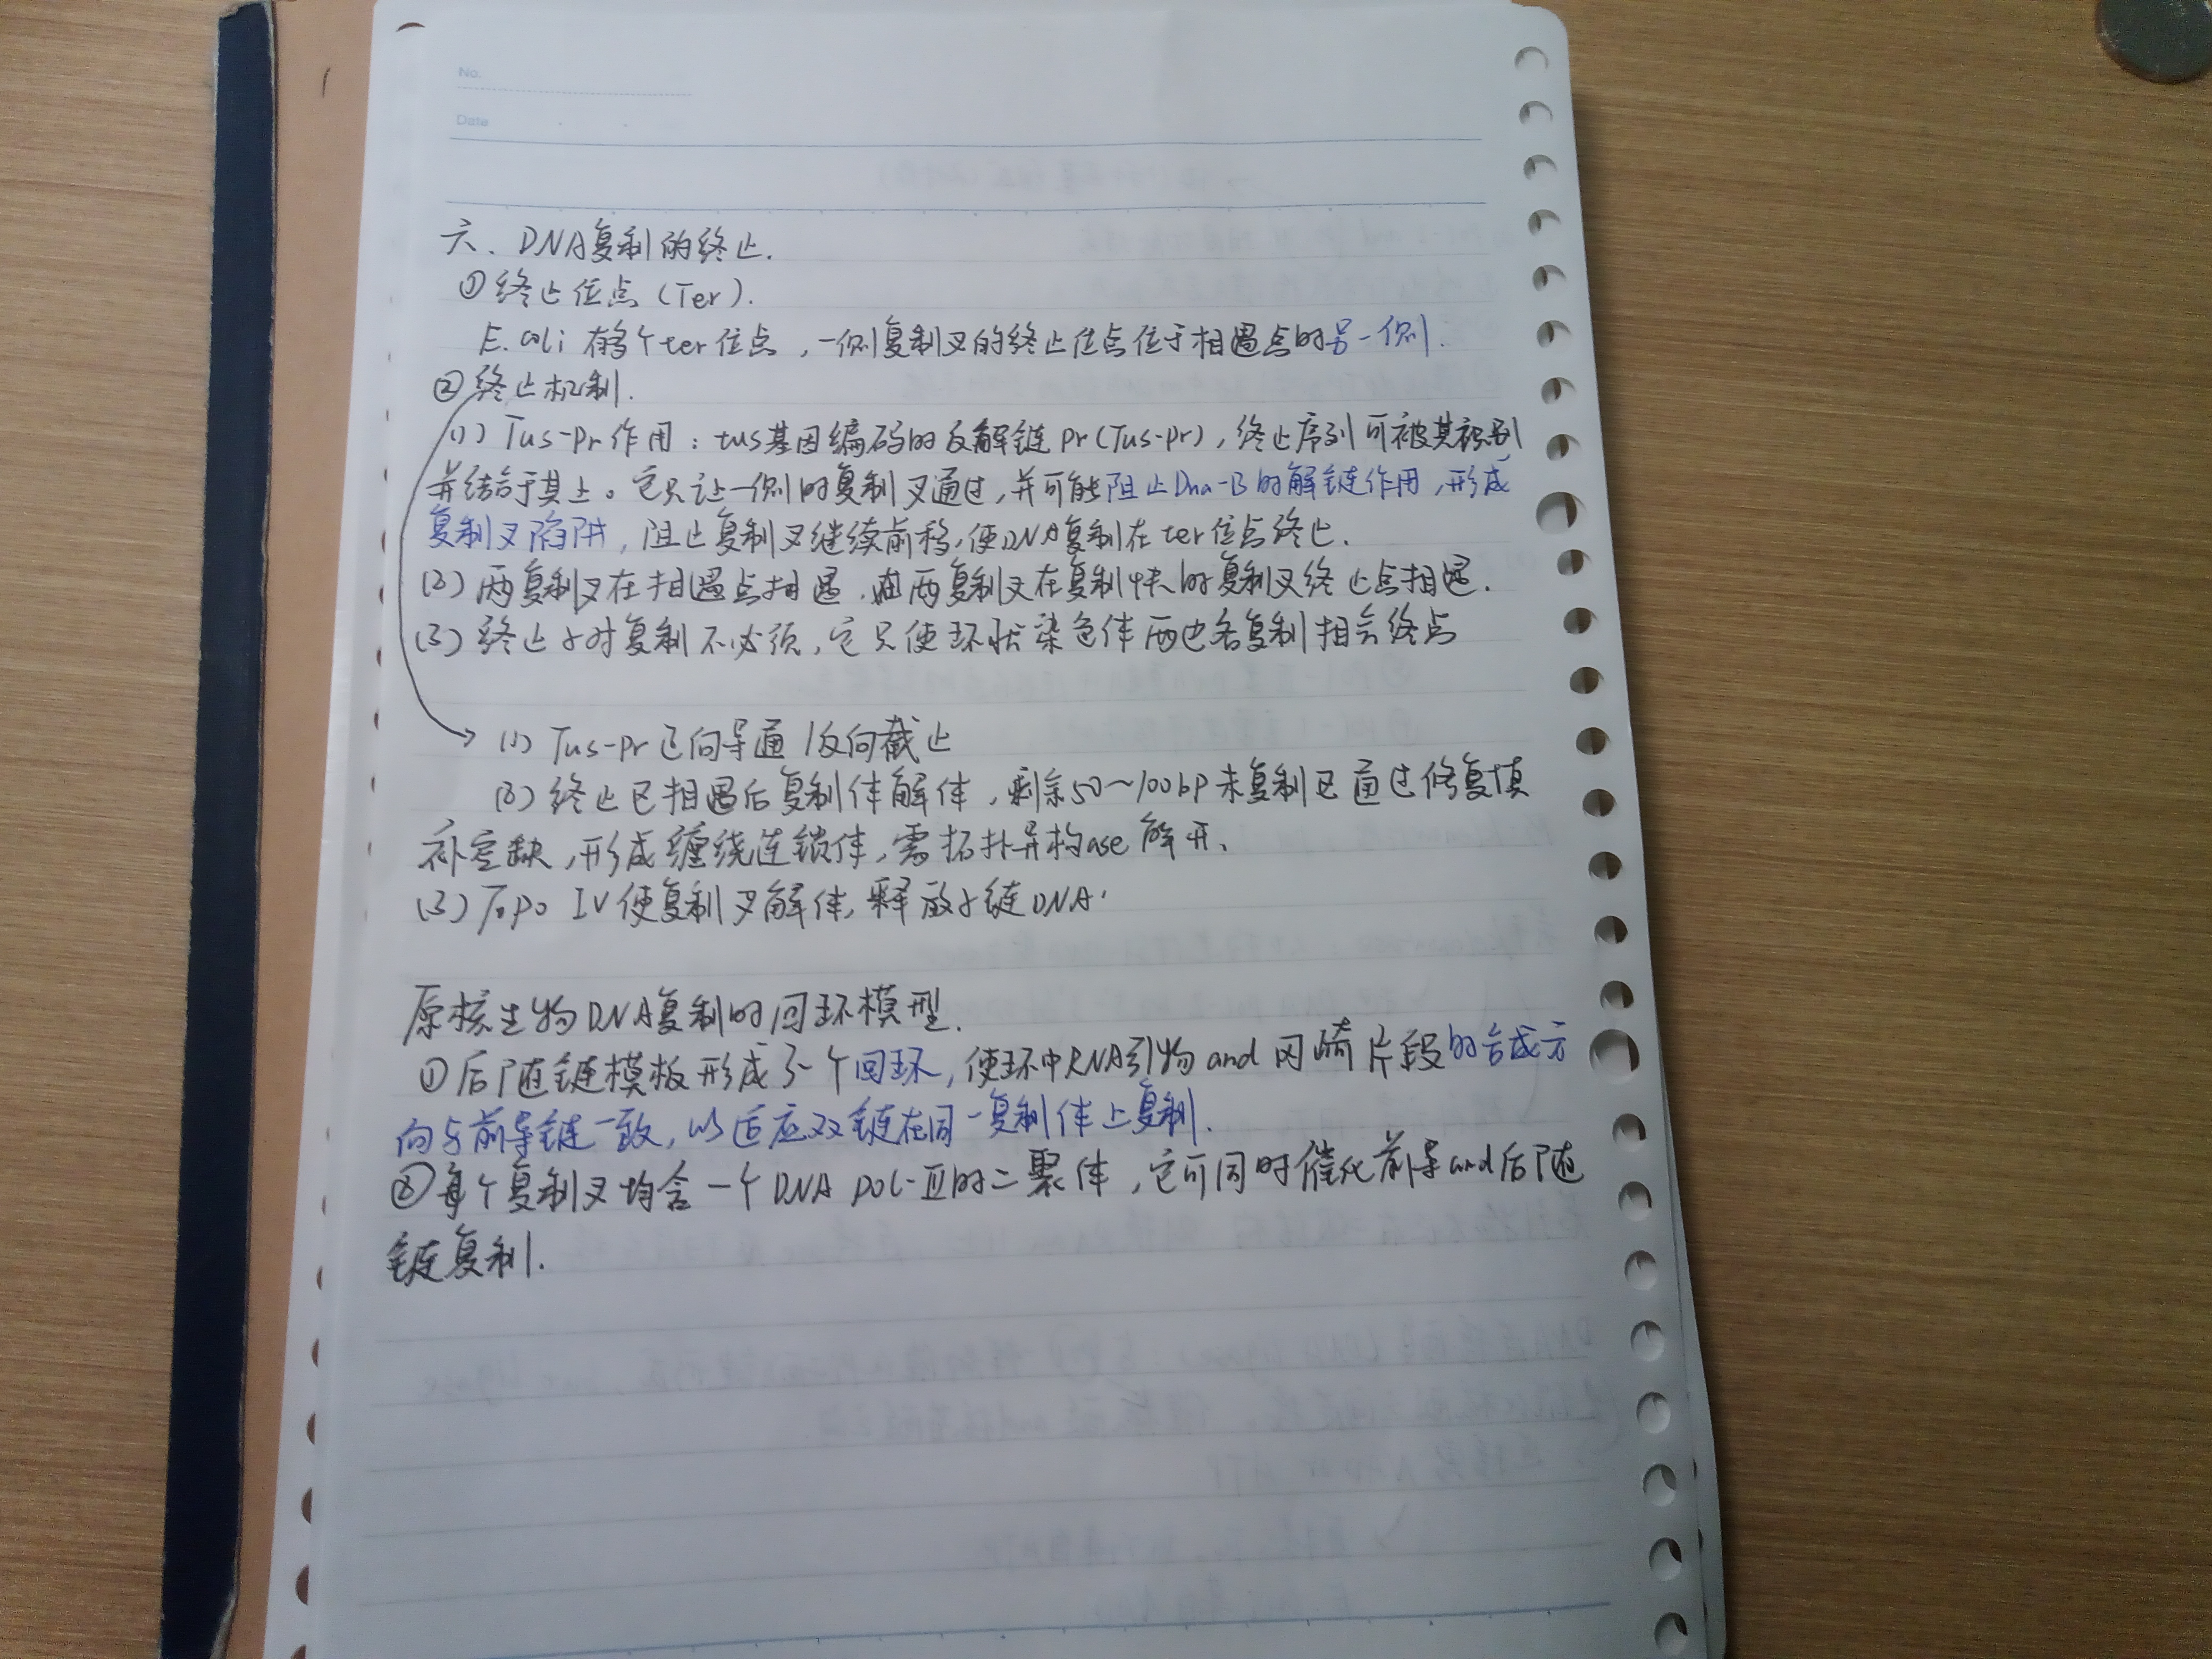 No.
Date
六、DNA复制的终止.
①终止位点(Ter).
E.coli 有多个ter位点,一侧复制叉的终止位点位于相遇点的另一侧.
②终止机制.
(1) Tus-pr作用:tus基因编码的反解链pr(Tus-pr),终止序列可被其识别
并结合于其上。它只让一侧的复制叉通过,并可能阻止Dna-B的解链作用,形成
复制叉陷阱,阻止复制叉继续前移,使DNA复制在ter位点终止.
(2) 两复制叉在相遇点相遇.或两复制叉在复制快的复制叉终止点相遇.
(3) 终止子对复制不必须,它只使环状染色体两边各复制相会终点
(1) Tus-pr正向导通/反向截止
(2) 终止区相遇后复制体解体,剩余50~100bp未复制区通过修复填
补空缺,形成缠绕连锁体,需拓扑异构ase解开.
(3) Topo IV使复制叉解体,释放子链DNA.
原核生物DNA复制的回环模型.
①后随链模板形成了一个回环,使环中RNA引物and冈崎片段的合成方
向与前导链一致,以适应双链在同一复制体上复制.
②每个复制叉均含一个DNA pol-Ⅲ的二聚体,它可同时催化前导and后随
链复制.